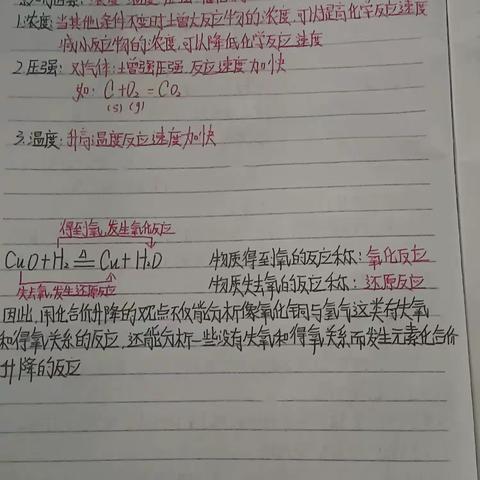 1.浓度:当其他条件不变时,增大反应物的浓度,可以提高化学反应速度
减小反应物的浓度,可以降低化学反应速度
2.压强:对气体:增强压强,反应速度加快
如:C+O₂=CO₂
(s) (g)
3.温度:升高温度反应速度加快
得到氧,发生氧化反应
CuO+H₂ ≜ Cu+H₂O
失去氧,发生还原反应
物质得到氧的反应称:氧化反应
物质失去氧的反应称:还原反应
因此,用化合价升降的观点不仅能分析像氧化铜与氢气这类有失氧
和得氧关系的反应,还能分析一些没有失氧和得氧关系而发生元素化合价
升降的反应